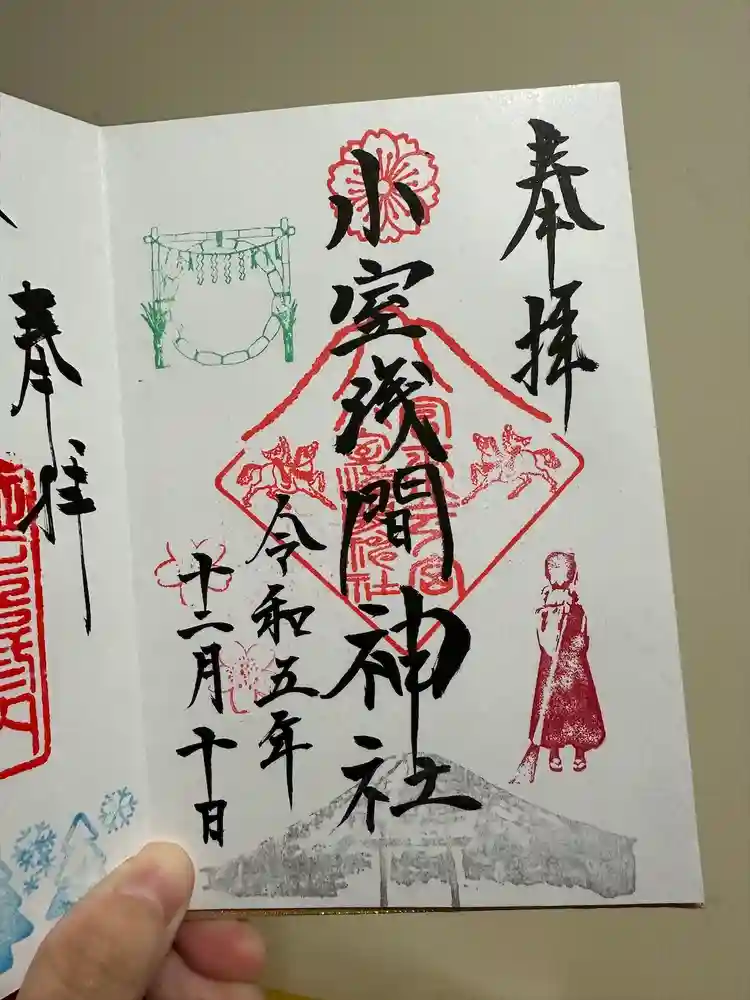 奉拝
小室浅間神社
令和五年
十二月十日
奉拝